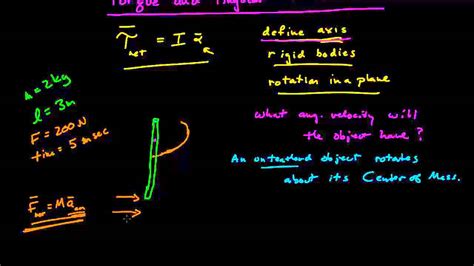 Torque and Angular
τ̄net = I ᾱ
define axis
rigid bodies
rotation in a plane
m = 2kg
l = 3m
F = 200N
time = 5 msec
What ang. velocity will
the object have?
An untethered object rotates
about its Center of Mass.
F̄net = Mācm